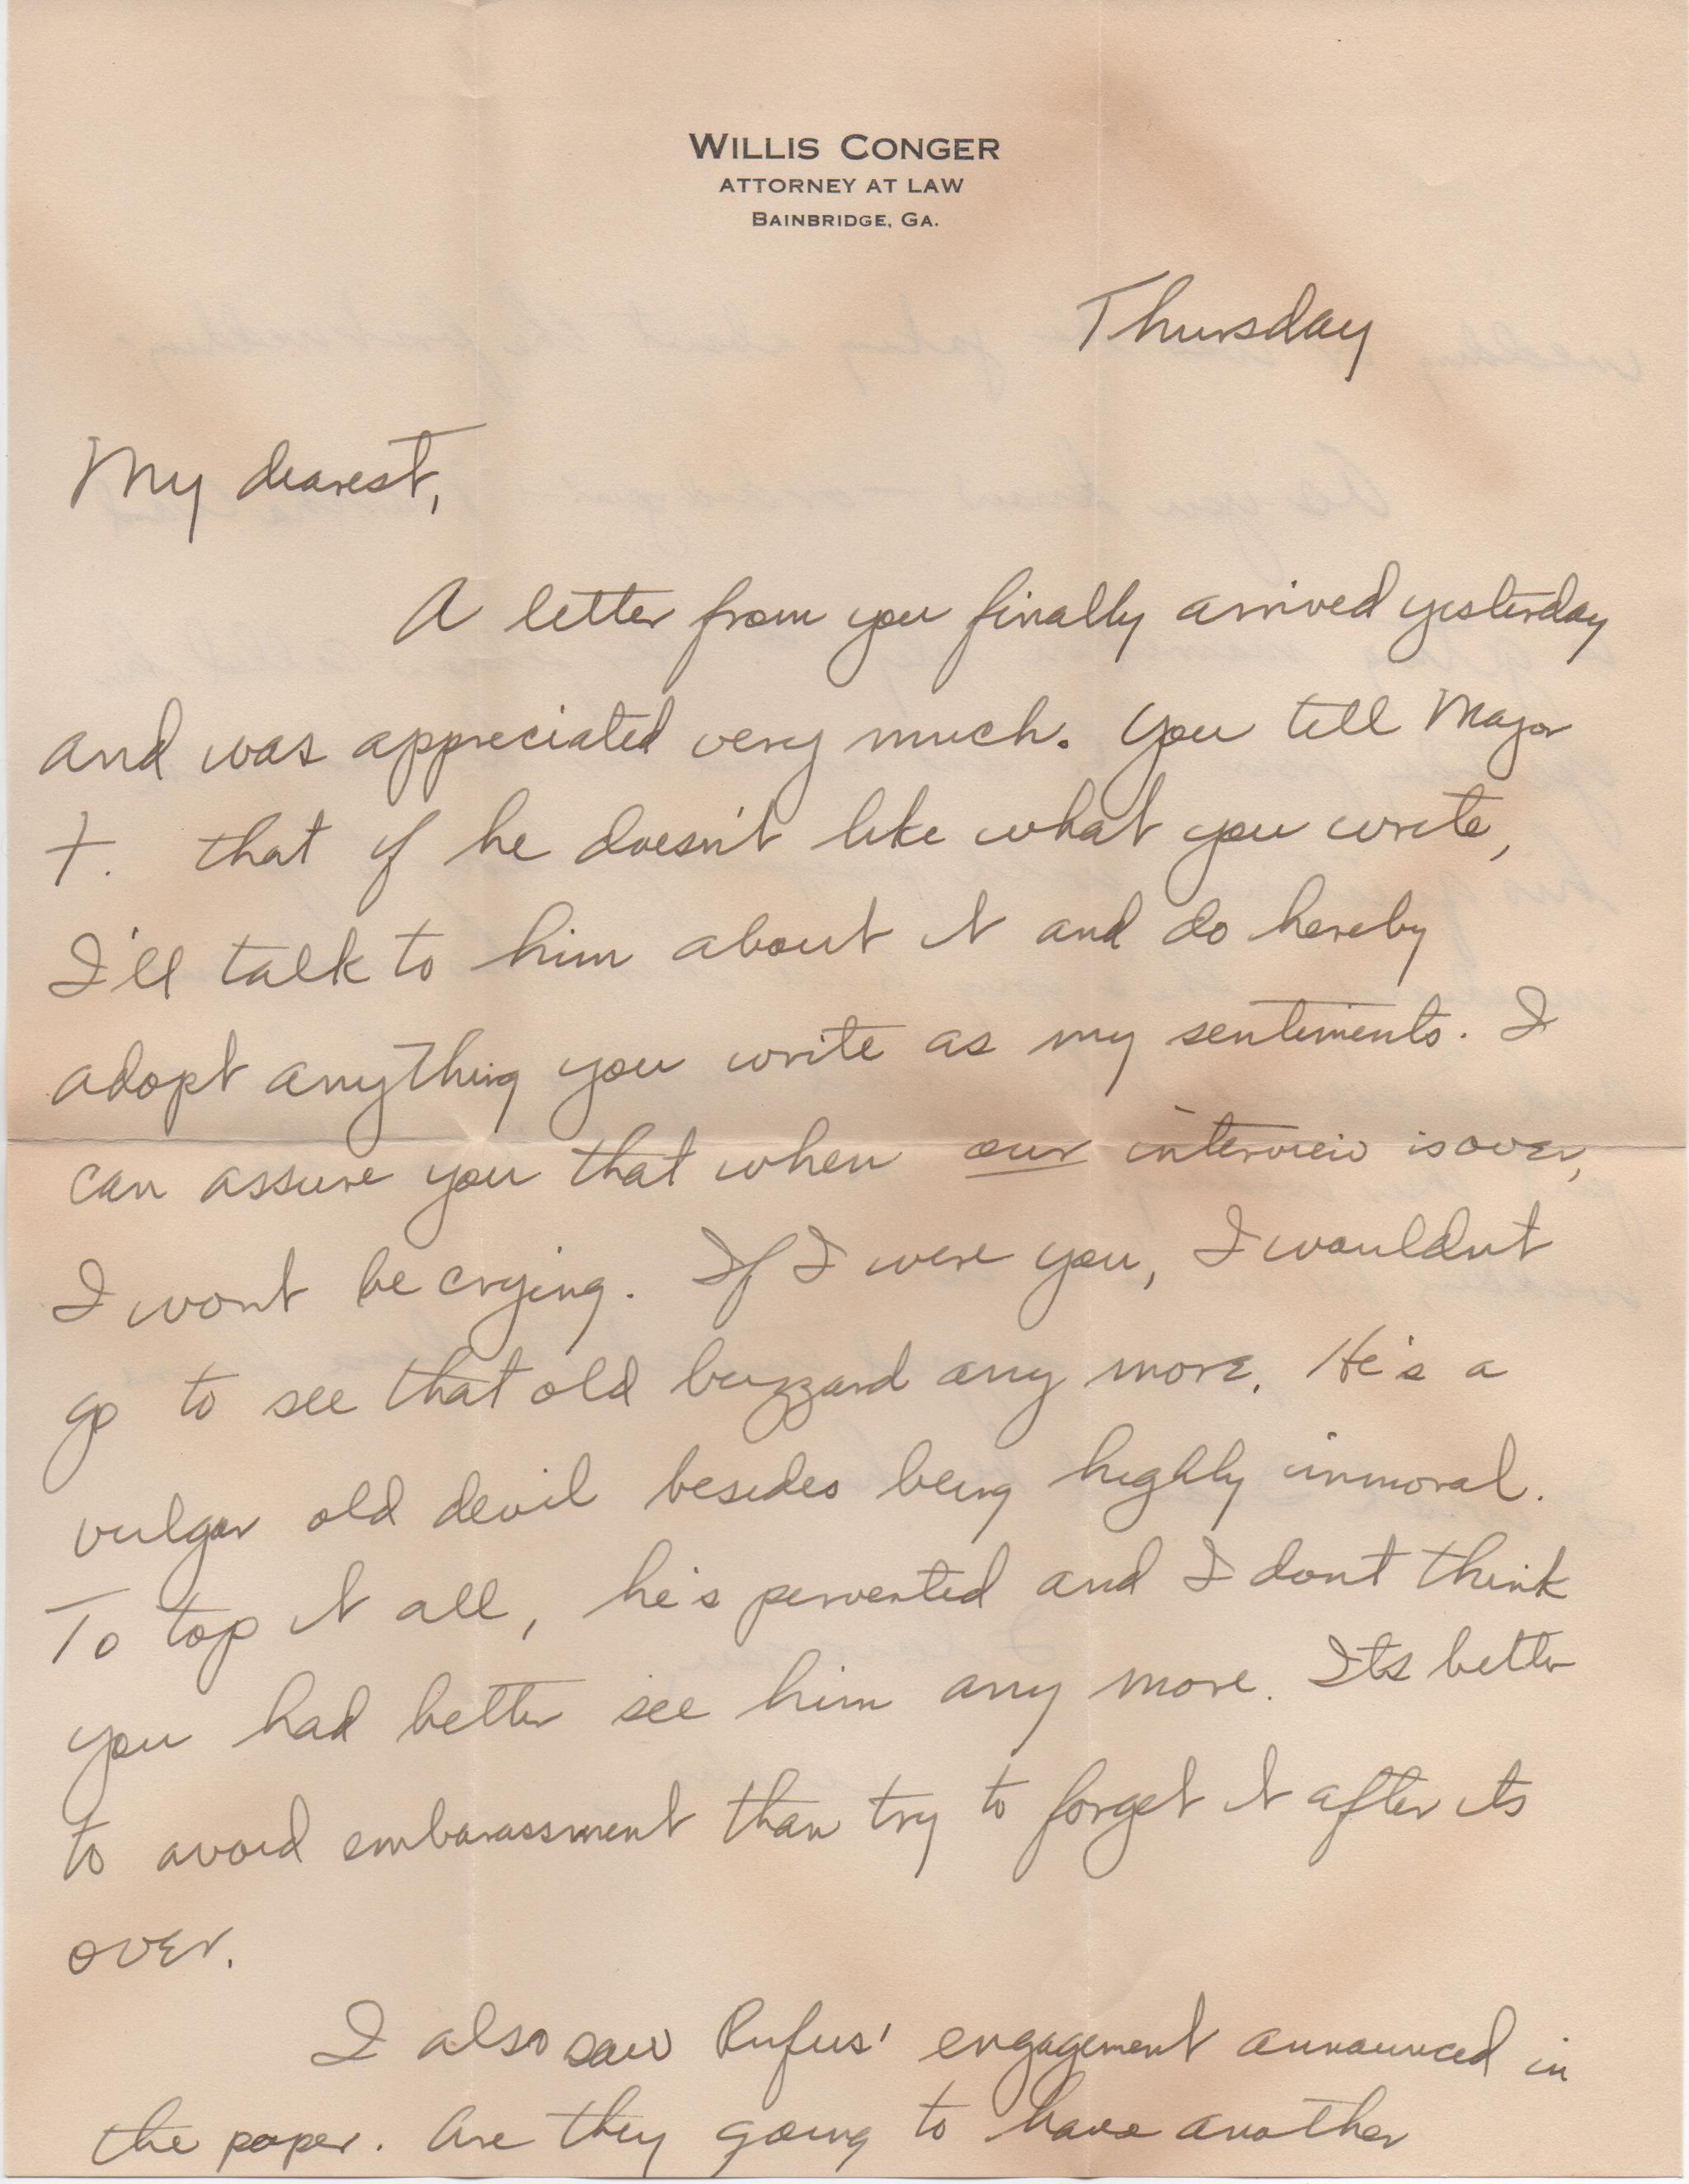 WILLIS CONGER
ATTORNEY AT LAW
BAINBRIDGE, GA.
Thursday
My dearest,
A letter from you finally arrived yesterday
and was appreciated very much. You tell Major
T. that if he doesn't like what you write,
I'll talk to him about it and do hereby
adopt anything you write as my sentiments. I
can assure you that when our interview is over,
I wont be crying. If I were you, I wouldnt
go to see that old buzzard any more. He's a
vulgar old devil besides being highly immoral.
To top it all, he's perverted and I dont think
you had better see him any more. Its better
to avoid embarassment than try to forget it after its
over.
I also saw Rufus' engagement announced in
the paper. Are they going to have another